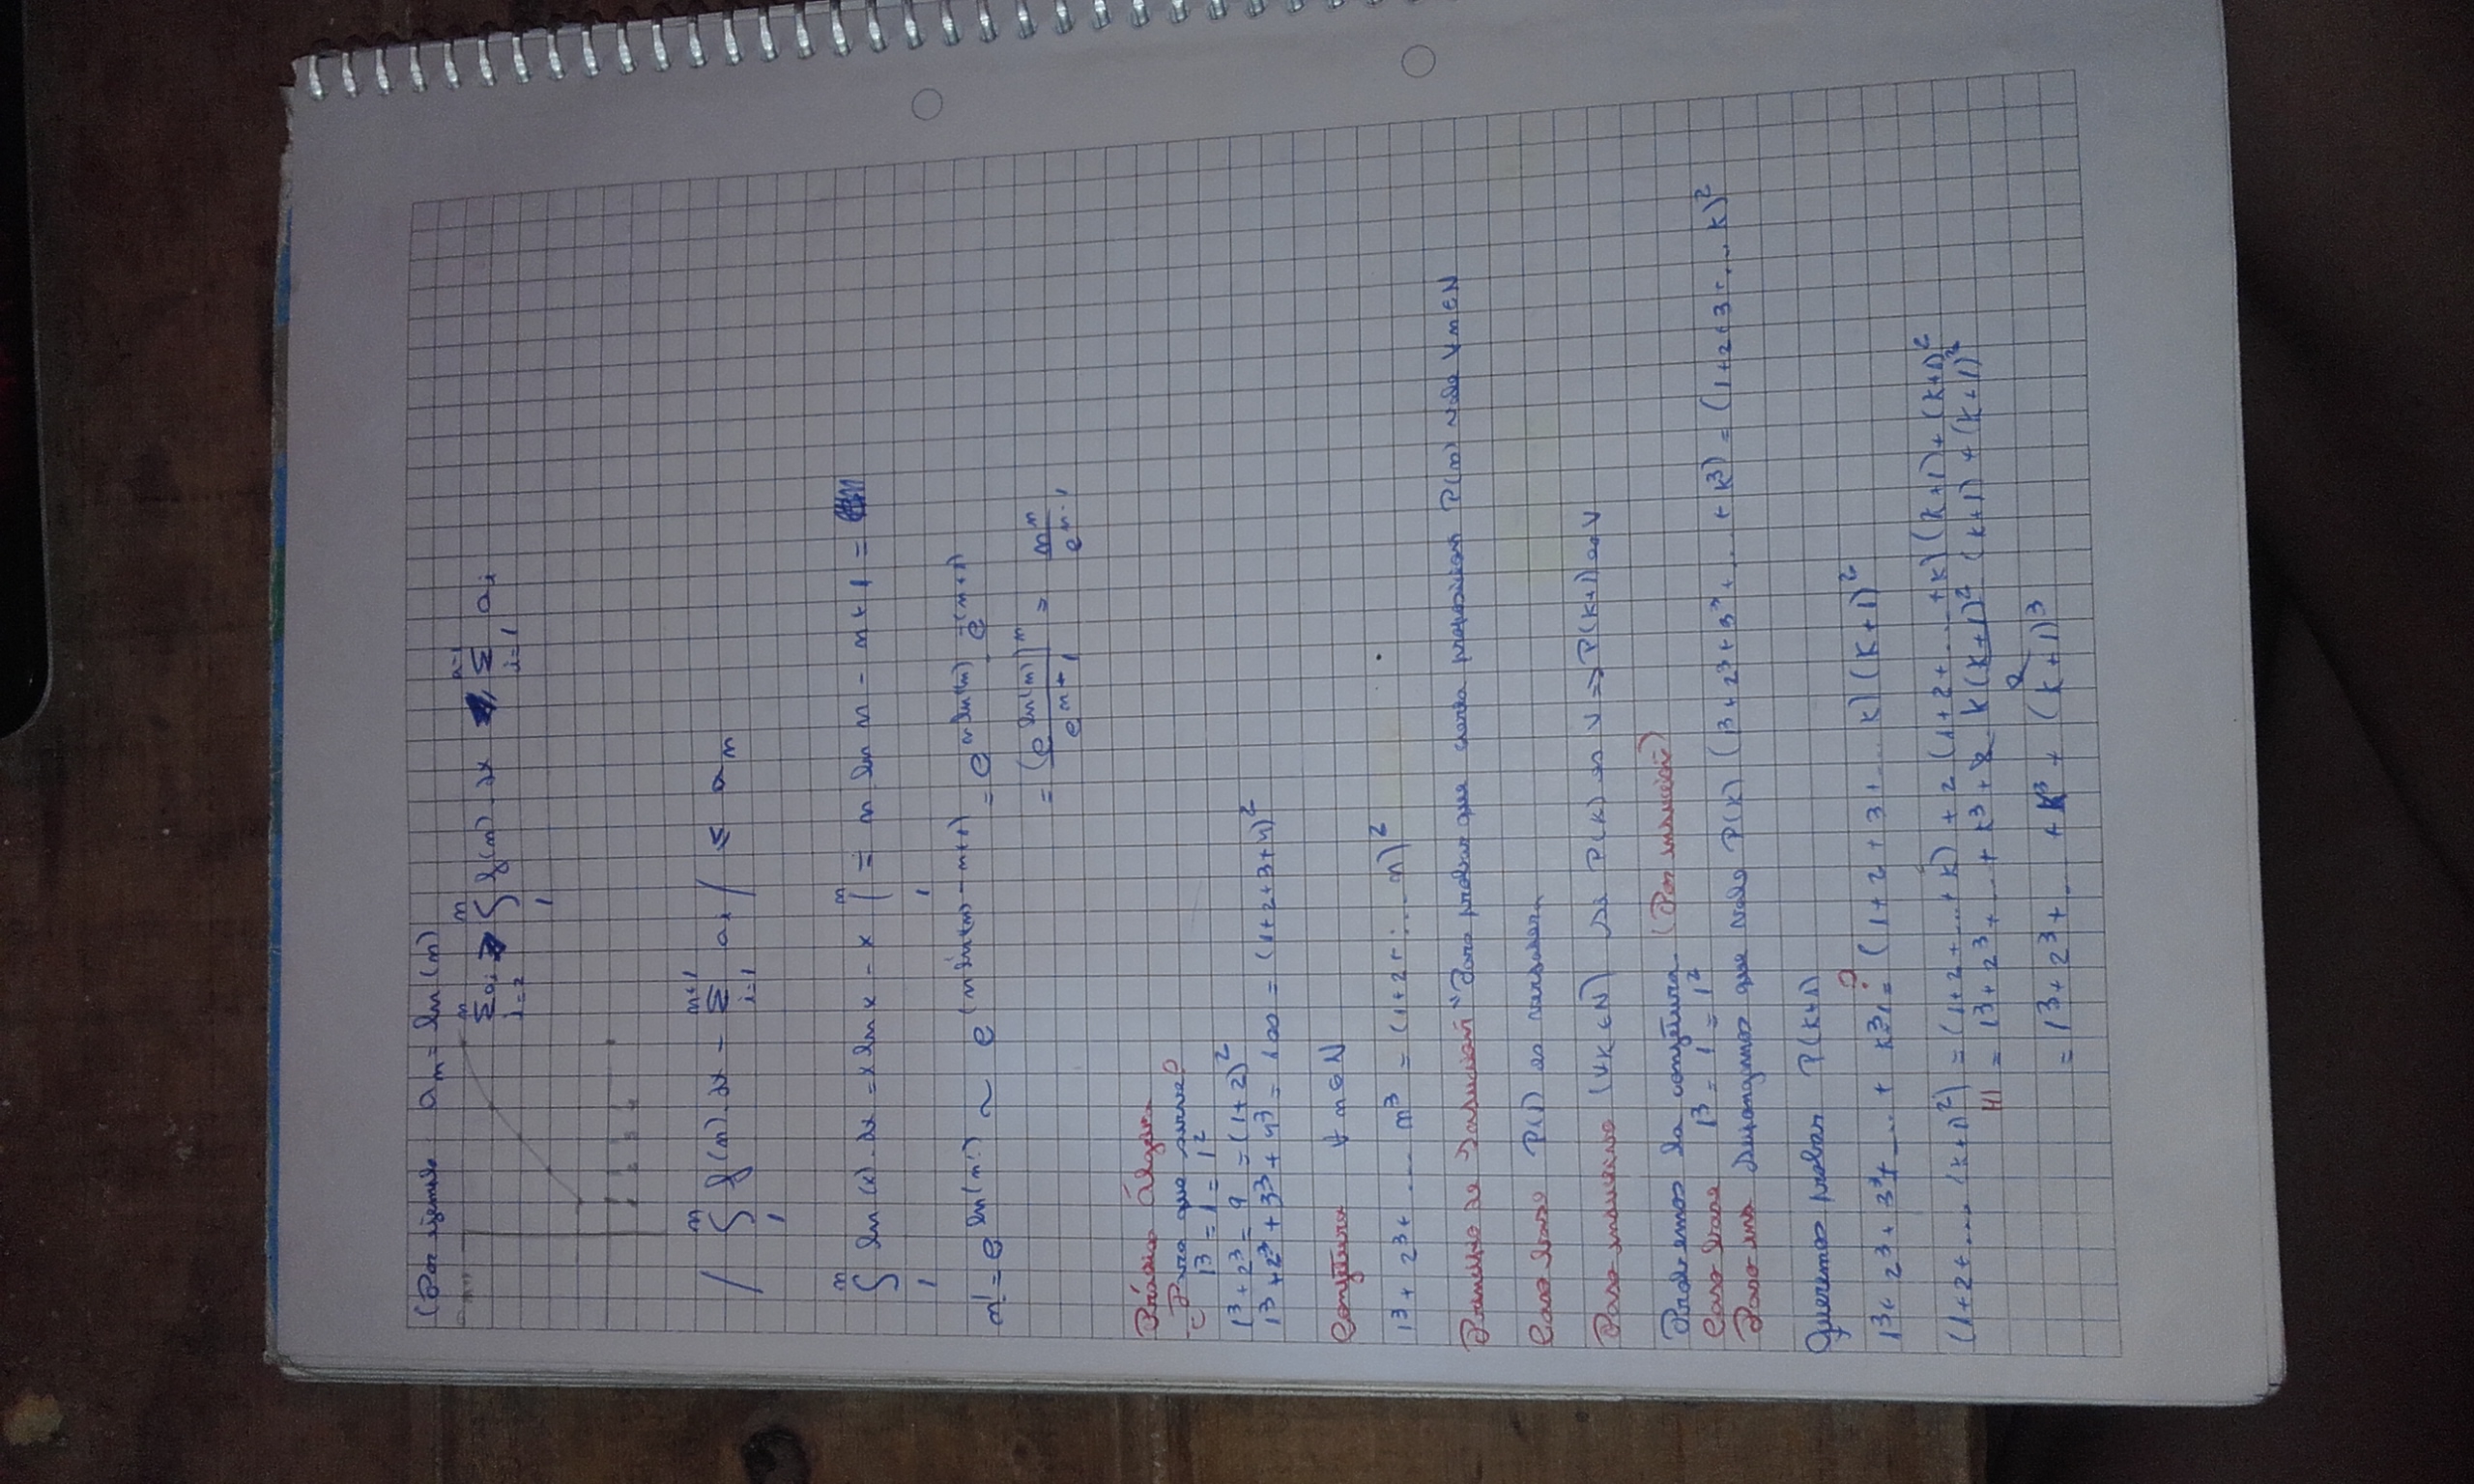 (Por ejemplo aₙ = ln(n)
n n n-1
Σ aᵢ ≥ ∫ f(n) dx ≥ Σ aᵢ
i=2 1 i=1
n n+1
| ∫ f(n) dx - Σ aᵢ | ≤ aₙ
1 i=1
n n
∫ ln(x) . dx = x ln x - x | = n ln n - n + 1 =
1 1
n! = e^ln(n!) ~ e^(n ln(n) - n+1) = e^n ln(n) . e^-(n+1)
= (e^ln(n))^n / e^n+1 = n^n / e^n-1
Álgebra
¿Para que sirve?
1³ = 1 = 1²
1³ + 2³ = 9 = (1+2)²
1³ + 2³ + 3³ + 4³ = 100 = (1+2+3+4)²
Conjetura ∀ n ∈ N
1³ + 2³ + .... n³ = (1+2+ ... n)²
Principio de Inducción "Para probar que cierta proposicion P(n) vale ∀ n ∈ N
Caso base P(1) es verdadera
Paso inductivo (∀K ∈ N) Si P(K) es V ⇒ P(K+1) es V
Probemos la conjetura (Por inducción)
Caso base 1³ = 1 = 1²
Paso ind Supongamos que vale P(K) (1³ + 2³ + 3³ + ... + K³) = (1+2+3+... K)²
Queremos probar P(K+1)
1³ + 2³ + 3³ + .... + K³ =? (1 + 2 + 3 + ... K) (K+1)²
(1+2+ .... (K+1)²) = (1+2+...+K) + 2 (1+2+ ... +K) (K+1) + (K+1)²
HI = 1³ + 2³ + ... + K³ + 2 . K(K+1)² / 2 (K+1) + (K+1)²
= 1³ + 2³ + ... + K³ + (K+1)³